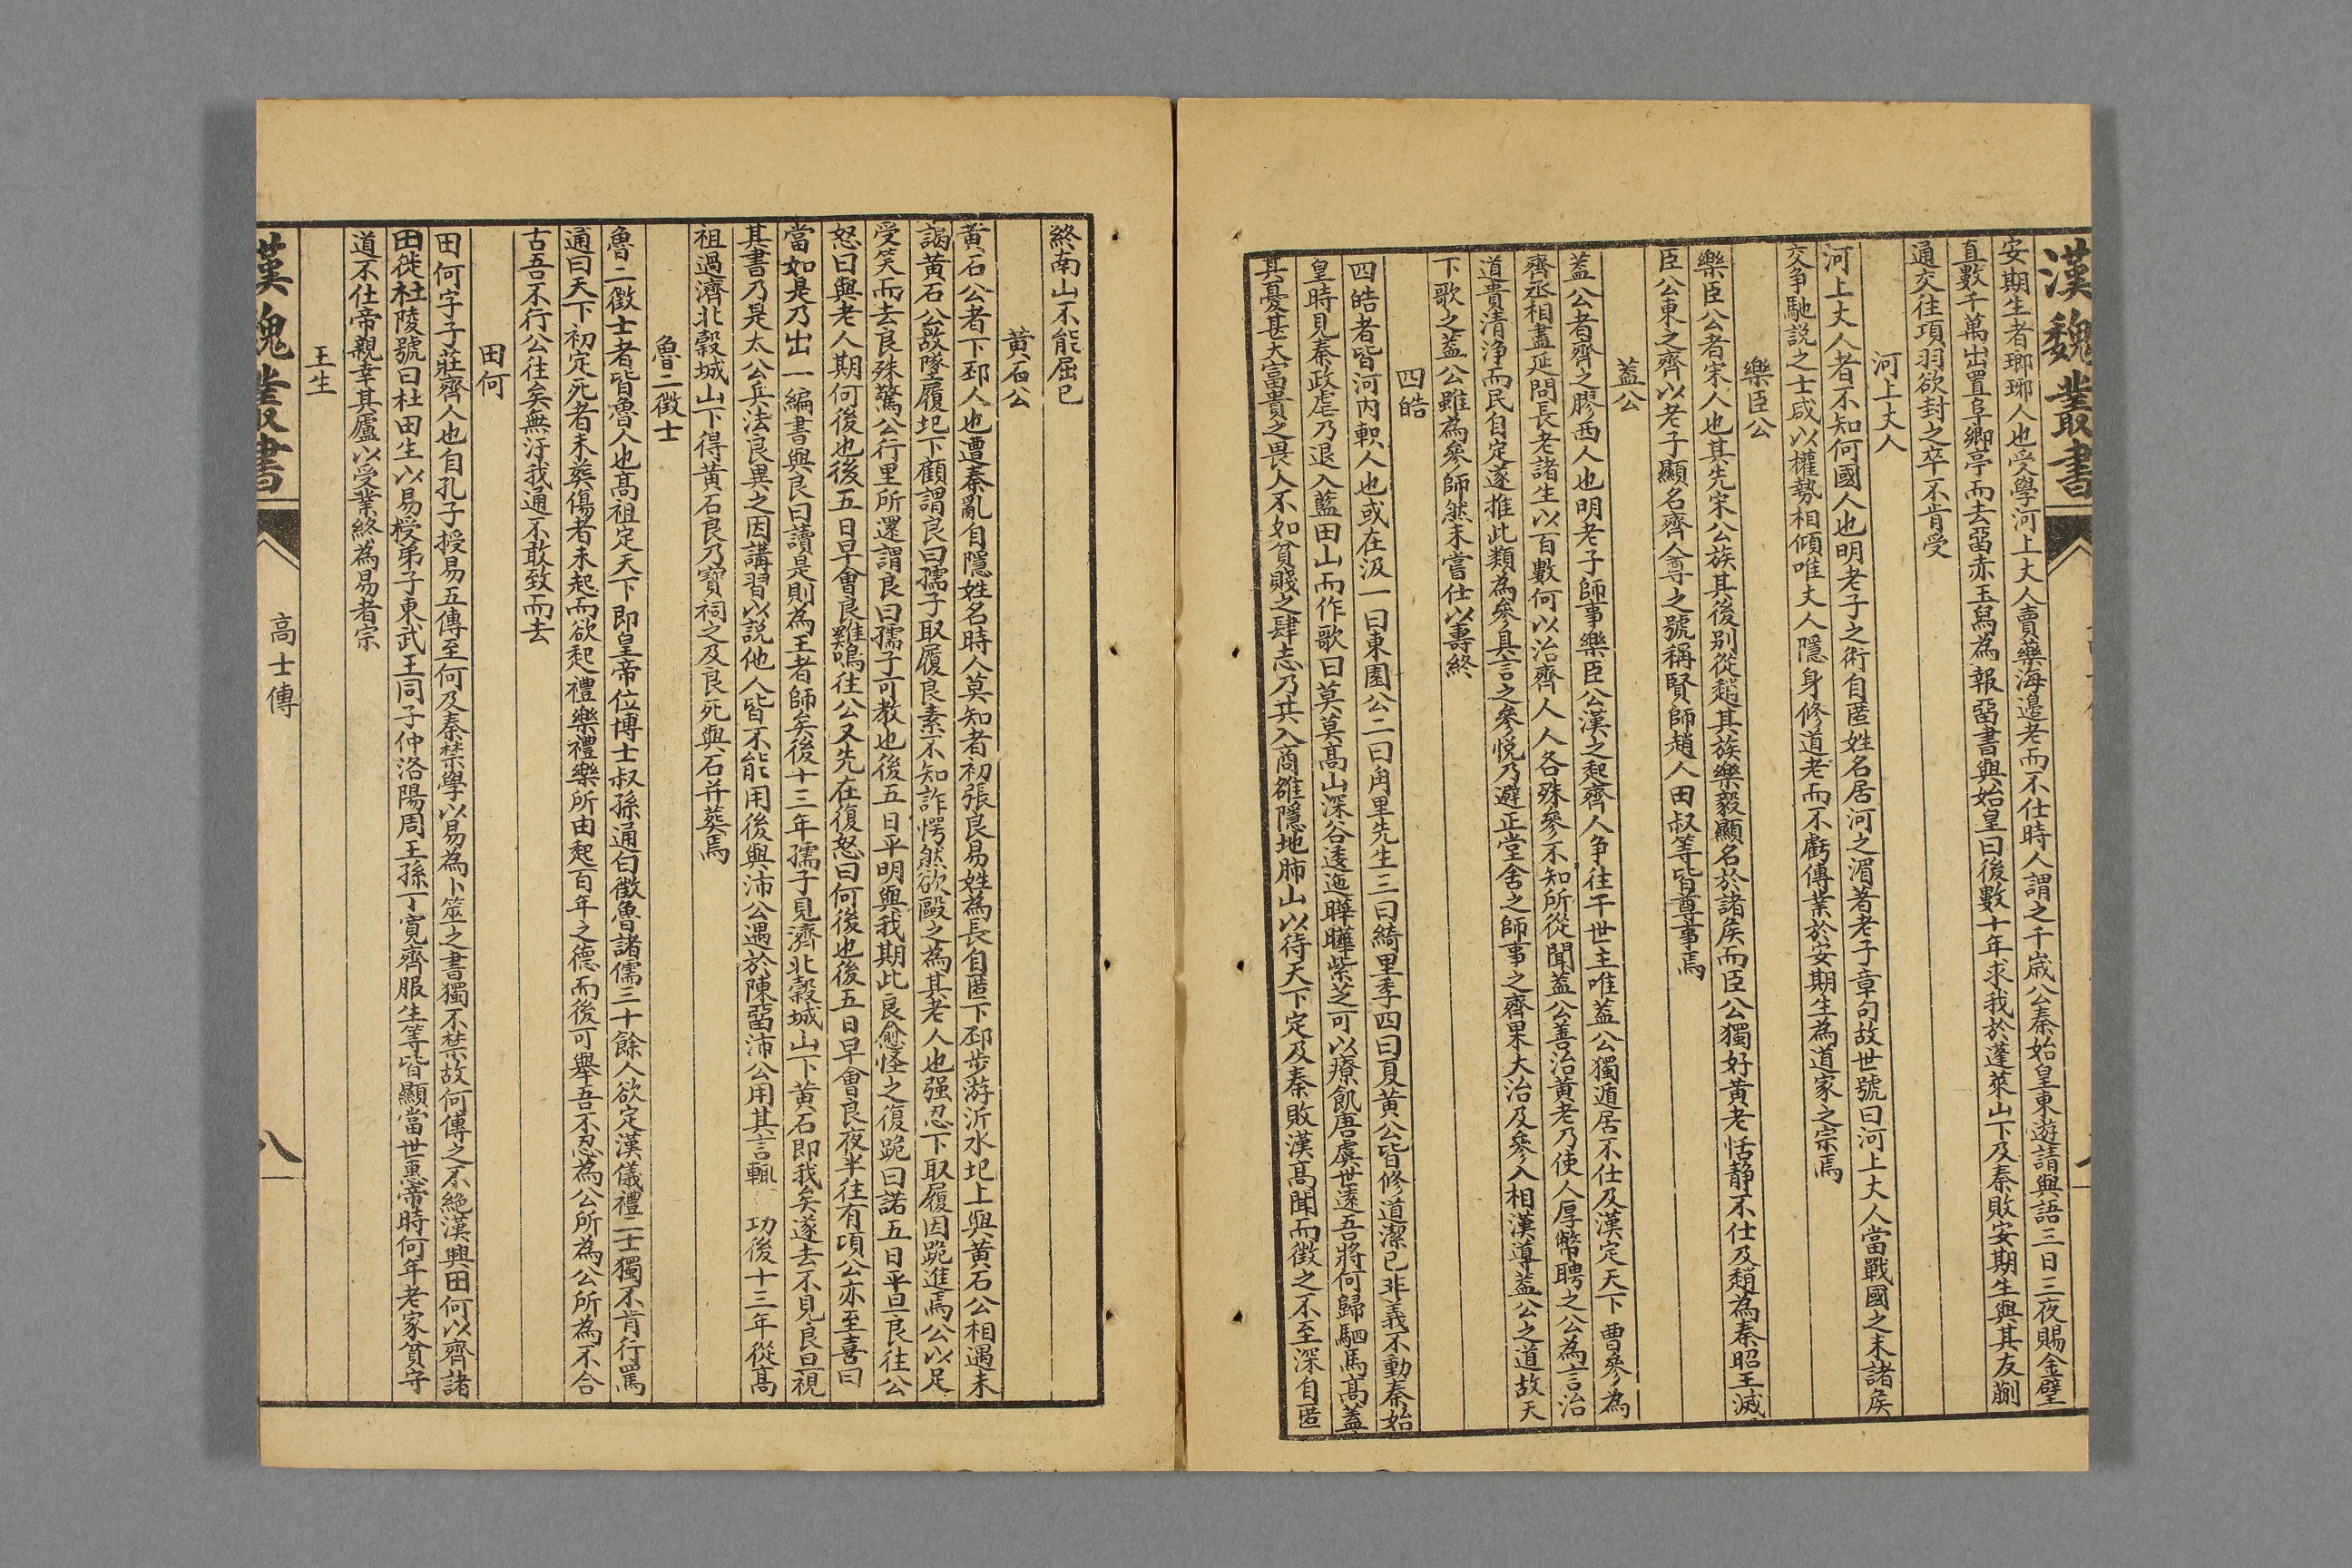 漢魏叢書
安期生者瑯琊人也受學河上丈人賣藥海邊老而不仕時人謂之千歲公秦始皇東遊請與語三日三夜賜金璧
直數千萬出置阜鄉亭而去留赤玉舄為報留書與始皇曰後數十年求我於蓬萊山下及秦敗安期生與其友蒯
通交往項羽欲封之卒不肯受
河上丈人
河上丈人者不知何國人也明老子之術自匿姓名居河之湄著老子章句故世號曰河上丈人當戰國之末諸侯
交争馳説之士咸以權勢相傾唯丈人隱身修道老而不虧傳業於安期生為道家之宗焉
樂臣公
樂臣公者宋人也其先宋公族其後别從趙其族樂毅顯名於諸侯而臣公獨好黃老恬静不仕及趙為秦昭王滅
臣公東之齊以老子顯名齊人尊之號稱賢師趙人田叔等皆尊事焉
蓋公
蓋公者齊之膠西人也明老子師事樂臣公漢之起齊人争往干世主唯蓋公獨遁居不仕及漢定天下曹參為
齊丞相盡延問長老諸生以百數何以治齊人人各殊參不知所從聞蓋公善治黃老乃使人厚幣聘之公為言治
道貴清浄而民自定遂推此類為參具言之參悦乃避正堂舍之師事之齊果大治及參入相漢導蓋公之道故天
下歌之蓋公雖為參師然未嘗仕以壽終
四皓
四皓者皆河内軹人也或在汲一曰東園公二曰甪里先生三曰綺里季四曰夏黃公皆修道潔已非義不動秦始
皇時見秦政虐乃退入藍田山而作歌曰莫莫高山深谷逶迤曄曄紫芝可以療飢唐虞世遠吾將何歸駟馬高蓋
其憂甚大富貴之畏人不如貧賤之肆志乃共入商雒隱地肺山以待天下定及秦敗漢高聞而徵之不至深自匿
終南山不能屈已
黃石公
黃石公者下邳人也遭秦亂自隱姓名時人莫知者初張良易姓為長自匿下邳步游沂水圯上與黃石公相遇未
謁黃石公故墜履圯下顧謂良曰孺子取履良素不知詐愕然欲毆之為其老人也强忍下取履因跪進焉公以足
受笑而去良殊驚公行里所還謂良曰孺子可教也後五日平明與我期此良愈怪之復跪曰諾五日平旦良往公
怒曰與老人期何後也後五日早會良雞鳴往公又先在復怒曰何後也後五日早會良夜半往有頃公亦至喜曰
當如是乃出一編書與良曰讀是則為王者師矣後十三年孺子見濟北穀城山下黃石即我矣遂去不見良旦視
其書乃是太公兵法良異之因講習以説他人皆不能用後與沛公遇於陳留沛公用其言輒 功後十三年從高
祖過濟北穀城山下得黃石良乃寶祠之及良死與石并葬焉
魯二徵士
魯二徵士者皆魯人也高祖定天下即皇帝位博士叔孫通白徵魯諸儒三十餘人欲定漢儀禮二士獨不肯行罵
通曰天下初定死者未葬傷者未起而欲起禮樂禮樂所由起百年之德而後可舉吾不忍為公所為公所為不合
古吾不行公往矣無汙我通不敢致而去
田何
田何字子莊齊人也自孔子授易五傳至何及秦禁學以易為卜筮之書獨不禁故何傳之不絶漢興田何以齊諸
田徙杜陵號曰杜田生以易授弟子東武王同子仲洛陽周王孫丁寛齊服生等皆顯當世惠帝時何年老家貧守
道不仕帝親幸其廬以受業終為易者宗
王生
漢魏叢書
高士傳
八